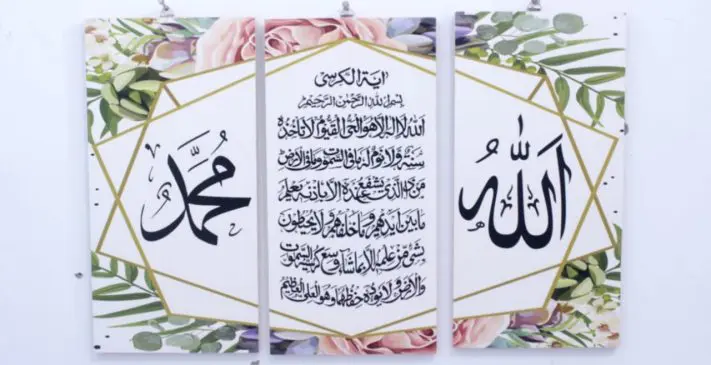 الله
اية الكرسي
بسم الله الرحمن الرحيم
الله لا اله الا هو الحي القيوم لا تأخذه
سنة ولا نوم له ما في السموت وما في الارض
من ذا الذي يشفع عنده الا باذنه يعلم
ما بين ايديهم وما خلفهم ولا يحيطون
بشئ من علمه الا بما شاء وسع كرسيه السموت
والارض ولا يؤده حفظهما وهو العلي العظيم
محمد